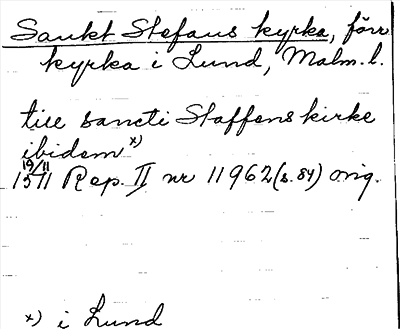 Sankt Stefans kyrka, förr
kyrka i Lund, Malm. l.
till sancti Staffens kirke
ibidem x)
19/11
1511 Rep. II nr 11962 (s. 84) orig.
x) i Lund